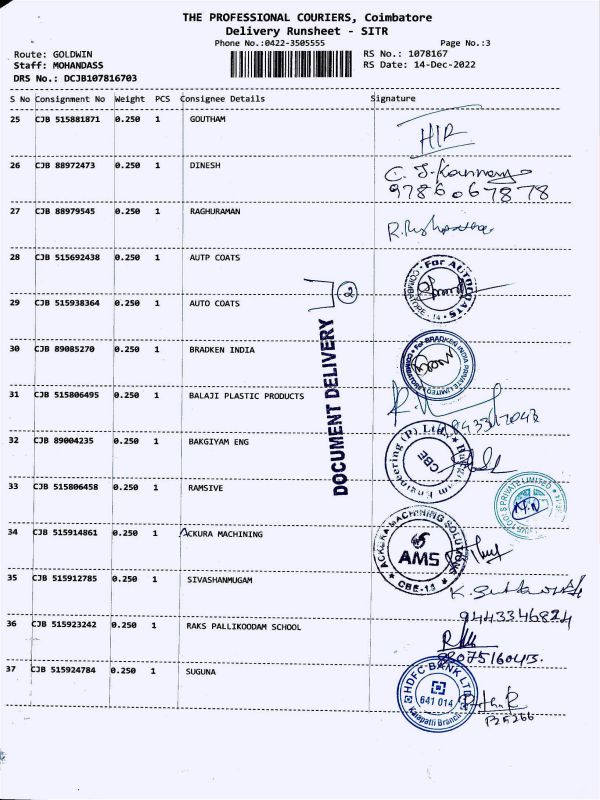 THE PROFESSIONAL COURIERS, Coimbatore
Delivery Runsheet - SITR
Phone No.:0422-3505555 Page No.:3
Route: GOLDWIN RS No.: 1078167
Staff: MOHANDASS RS Date: 14-Dec-2022
DRS No.: DCJB107816703
S No Consignment No Weight PCS Consignee Details Signature
25 CJB 515881871 0.250 1 GOUTHAM
26 CJB 88972473 0.250 1 DINESH
9786067878
27 CJB 88979545 0.250 1 RAGHURAMAN
28 CJB 515692438 0.250 1 AUTP COATS
29 CJB 515938364 0.250 1 AUTO COATS
2
DOCUMENT DELIVERY
30 CJB 89085270 0.250 1 BRADKEN INDIA
For BRADKEN INDIA PRIVATE LIMITED
31 CJB 515806495 0.250 1 BALAJI PLASTIC PRODUCTS
32 CJB 89004235 0.250 1 BAKGIYAM ENG
CBE
33 CJB 515806458 0.250 1 RAMSIVE
PRIVATE LIMITED
34 CJB 515914861 0.250 1 ACKURA MACHINING
ACKURA MACHINING SOLUTIONS
AMS
CBE-14
35 CJB 515912785 0.250 1 SIVASHANMUGAM
9443346824
36 CJB 515923242 0.250 1 RAKS PALLIKOODAM SCHOOL
37 CJB 515924784 0.250 1 SUGUNA
HDFC BANK LTD
641 014
Kalapatti Branch